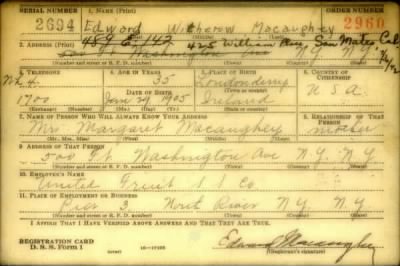 SERIAL NUMBER 1. NAME (Print) ORDER NUMBER
2694 Edward Witherow Macaughey 2960
(First) (Middle) (Last)
2. ADDRESS (Print)
425 William Ave, San Mateo, Cal.
Washington Ave N.Y.
(Number and street or R. F. D. number) (Town) (County) (State)
3. TELEPHONE 4. AGE IN YEARS 5. PLACE OF BIRTH 6. COUNTRY OF CITIZENSHIP
35 Londonderry
DATE OF BIRTH
1700 Jan 1905 Ireland U S A.
(Exchange) (Number) (Mo.) (Day) (Yr.) (State or country)
7. NAME OF PERSON WHO WILL ALWAYS KNOW YOUR ADDRESS 8. RELATIONSHIP OF THAT PERSON
Mrs Margaret Macaughey mother
(Mr., Mrs., Miss) (First) (Middle) (Last)
9. ADDRESS OF THAT PERSON
500 Ft Washington Ave N.Y. N.Y.
(Number and street or R. F. D. number) (Town) (County) (State)
10. EMPLOYER'S NAME
United Fruit S S Co
11. PLACE OF EMPLOYMENT OR BUSINESS
Pier 3 North River N.Y. N.Y
(Number and street or R. F. D. number) (Town) (County) (State)
I AFFIRM THAT I HAVE VERIFIED ABOVE ANSWERS AND THAT THEY ARE TRUE.
REGISTRATION CARD
D. S. S. Form 1 Edward Macaughey
(Registrant's signature)